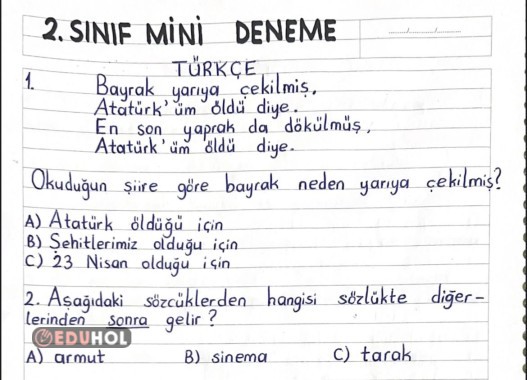 2. SINIF MİNİ DENEME
...../...../.....
TÜRKÇE
1.
Bayrak yarıya çekilmiş,
Atatürk'üm öldü diye.
En son yaprak da dökülmüş,
Atatürk'üm öldü diye.
Okuduğun şiire göre bayrak neden yarıya çekilmiş?
A) Atatürk öldüğü için
B) Şehitlerimiz olduğu için
C) 23 Nisan olduğu için
2. Aşağıdaki sözcüklerden hangisi sözlükte diğer-
lerinden sonra gelir?
EDUHOL
A) armut B) sinema C) tarak